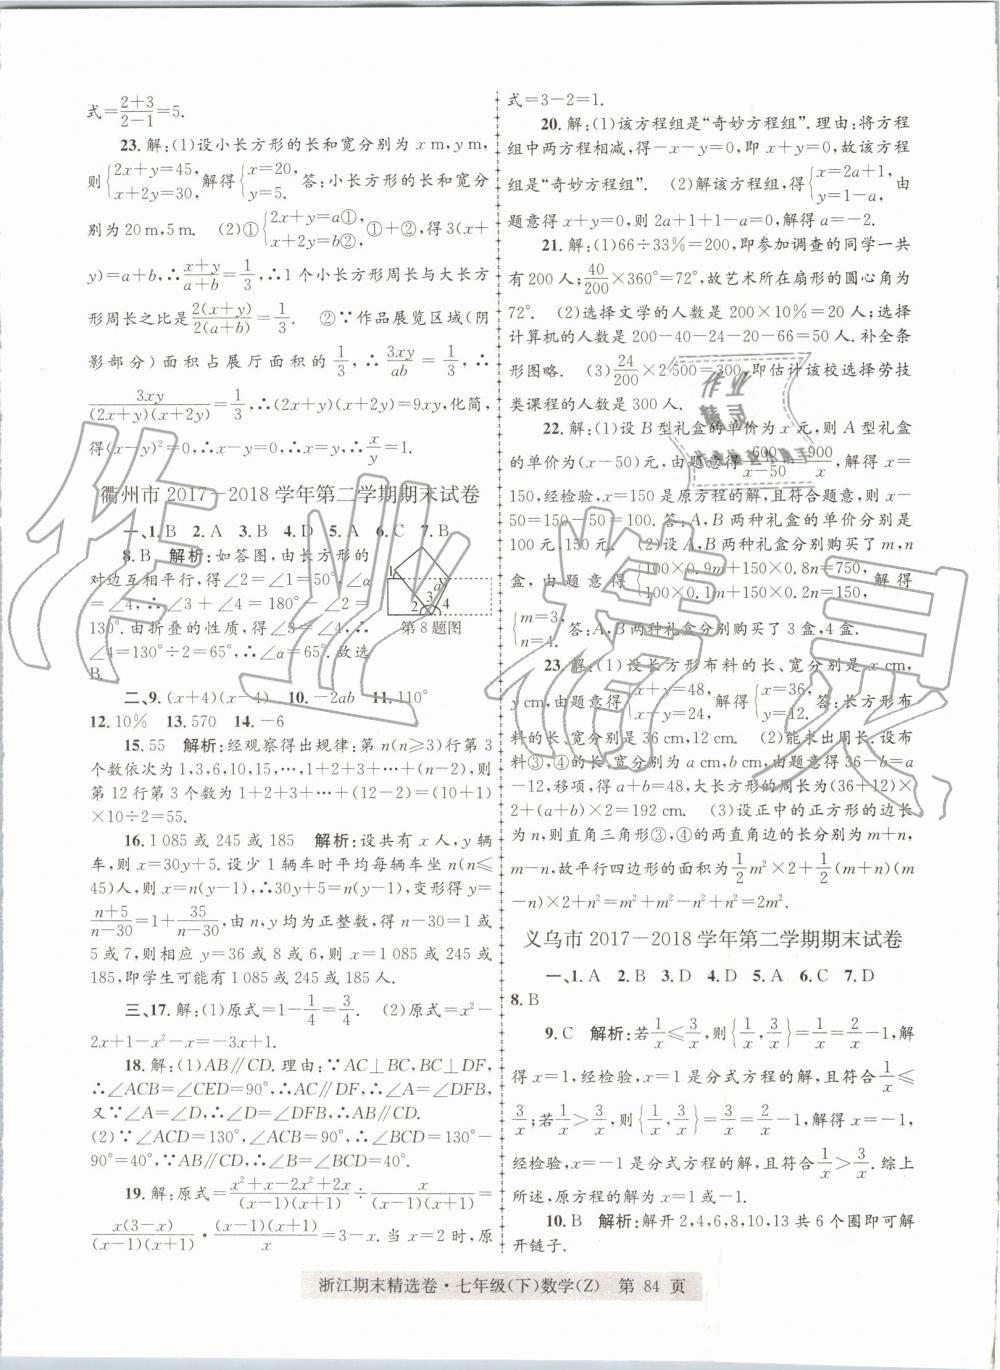 式=\frac{2+3}{2-1}=5.
23. 解:(1)设小长方形的长和宽分别为 x m,y m,
则{2x+y=45, x+2y=30, 解得{x=20, y=5. 答:小长方形的长和宽分
别为 20 m,5 m. (2)①{2x+y=a①, x+2y=b②, ①+②,得 3(x+
y)=a+b,∴\frac{x+y}{a+b}=\frac{1}{3},∴1 个小长方形周长与大长方
形周长之比是\frac{2(x+y)}{2(a+b)}=\frac{1}{3}. ②∵作品展览区域(阴
影部分)面积占展厅面积的\frac{1}{3},∴\frac{3xy}{ab}=\frac{1}{3},∴
\frac{3xy}{(2x+y)(x+2y)}=\frac{1}{3},∴(2x+y)(x+2y)=9xy,化简,
得(x-y)²=0,∴x-y=0,∴x=y,∴\frac{x}{y}=1.
衢州市 2017-2018 学年第二学期期末试卷
一、1. B 2. A 3. B 4. D 5. A 6. C 7. B
8. B 解析:如答图,由长方形的
对边互相平行,得∠2=∠1=50°,∠α
=∠4,∴∠3+∠4=180°-∠2=
130°.由折叠的性质,得∠3=∠4,∴
∠4=130°÷2=65°,∴∠α=65°.故选
B.
1 α 3 2 4
第 8 题图
二、9. (x+4)(x-4) 10. -2ab 11. 110°
12. 10% 13. 570 14. -6
15. 55 解析:经观察得出规律:第 n(n≥3)行第 3
个数依次为 1,3,6,10,15,…,1+2+3+…+(n-2),则
第 12 行第 3 个数为 1+2+3+…+(12-2)=(10+1)
×10÷2=55.
16. 1 085 或 245 或 185 解析:设共有 x 人,y 辆
车,则 x=30y+5.设少 1 辆车时平均每辆车坐 n(n≤
45)人,则 x=n(y-1),∴30y+5=n(y-1),变形得 y=
\frac{n+5}{n-30}=1+\frac{35}{n-30},由 n,y 均为正整数,得 n-30=1 或
5 或 7,则相应 y=36 或 8 或 6,则 x=1 085 或 245 或
185,即学生可能有 1 085 或 245 或 185 人.
三、17. 解:(1)原式=1-\frac{1}{4}=\frac{3}{4}. (2)原式=x²-
2x+1-x²-x=-3x+1.
18. 解:(1)AB∥CD.理由:∵AC⊥BC,BC⊥DF,
∴∠ACB=∠CED=90°,∴AC∥DF,∴∠A=∠DFB,
又∵∠A=∠D,∴∠D=∠DFB,∴AB∥CD.
(2)∵∠ACD=130°,∠ACB=90°,∴∠BCD=130°-
90°=40°.∵AB∥CD,∴∠B=∠BCD=40°.
19. 解:原式=\frac{x²+x-2x²+2x}{(x-1)(x+1)}÷\frac{x}{(x-1)(x+1)}=
\frac{x(3-x)}{(x-1)(x+1)}·\frac{(x-1)(x+1)}{x}=3-x.当 x=2 时,原
式=3-2=1.
20. 解:(1)该方程组是“奇妙方程组”.理由:将方程
组中两方程相减,得-x-y=0,即 x+y=0,故该方程
组是“奇妙方程组”. (2)解该方程组,得{x=2a+1, y=1-a, 由
题意得 x+y=0,则 2a+1+1-a=0,解得 a=-2.
21. 解:(1)66÷33%=200,即参加调查的同学一共
有 200 人;\frac{40}{200}×360°=72°,故艺术所在扇形的圆心角为
72°. (2)选择文学的人数是 200×10%=20 人;选择
计算机的人数是 200-40-24-20-66=50 人.补全条
形图略. (3)\frac{24}{200}×2 500=300,即估计该校选择劳技
类课程的人数是 300 人.
22. 解:(1)设 B 型礼盒的单价为 x 元,则 A 型礼盒
的单价为(x-50)元,由题意得\frac{600}{x-50}=\frac{900}{x},解得 x=
150,经检验,x=150 是原方程的解,且符合题意,则 x-
50=150-50=100.答:A,B 两种礼盒的单价分别是
100 元,150 元. (2)设 A,B 两种礼盒分别购买了 m,n
盒,由题意得{100×0.9m+150×0.8n=750, 100×0.1m+150×0.2n=150, 解得
{m=3, n=4. 答:A,B 两种礼盒分别购买了 3 盒,4 盒.
23. 解:(1)设长方形布料的长、宽分别为 x cm,
y cm,由题意得{x+y=48, x-y=24, 解得{x=36, y=12. 答:长方形布
料的长、宽分别是 36 cm,12 cm. (2)能求出周长.设布
料③,④的长、宽分别为 a cm,b cm,由题意得 36-b=a
-12,移项,得 a+b=48,大长方形的周长为(36+12)×
2+(a+b)×2=192 cm. (3)设正中的正方形的边长
为 n,则直角三角形③,④的两直角边的长分别为 m+n,
m-n,故平行四边形的面积为\frac{1}{2}m²×2+\frac{1}{2}(m+n)(m
-n)×2+n²=m²+m²-n²+n²=2m².
义乌市 2017-2018 学年第二学期期末试卷
一、1. A 2. B 3. D 4. D 5. A 6. C 7. D
8. B
9. C 解析:若\frac{1}{x}≤\frac{3}{x},则{\frac{1}{x},\frac{3}{x}}=\frac{1}{x}=\frac{2}{x}-1,解
得 x=1,经检验,x=1 是分式方程的解,且符合\frac{1}{x}≤
\frac{3}{x};若\frac{1}{x}>\frac{3}{x},则{\frac{1}{x},\frac{3}{x}}=\frac{3}{x}=\frac{2}{x}-1,解得 x=-1,
经检验,x=-1 是分式方程的解,且符合\frac{1}{x}>\frac{3}{x}.综上
所述,原方程的解为 x=1 或-1.
10. B 解析:解开 2,4,6,8,10,13 共 6 个圈即可解
开链子.
浙江期末精选卷·七年级(下)数学(Z) 第 84 页
作业精灵
作业
精灵